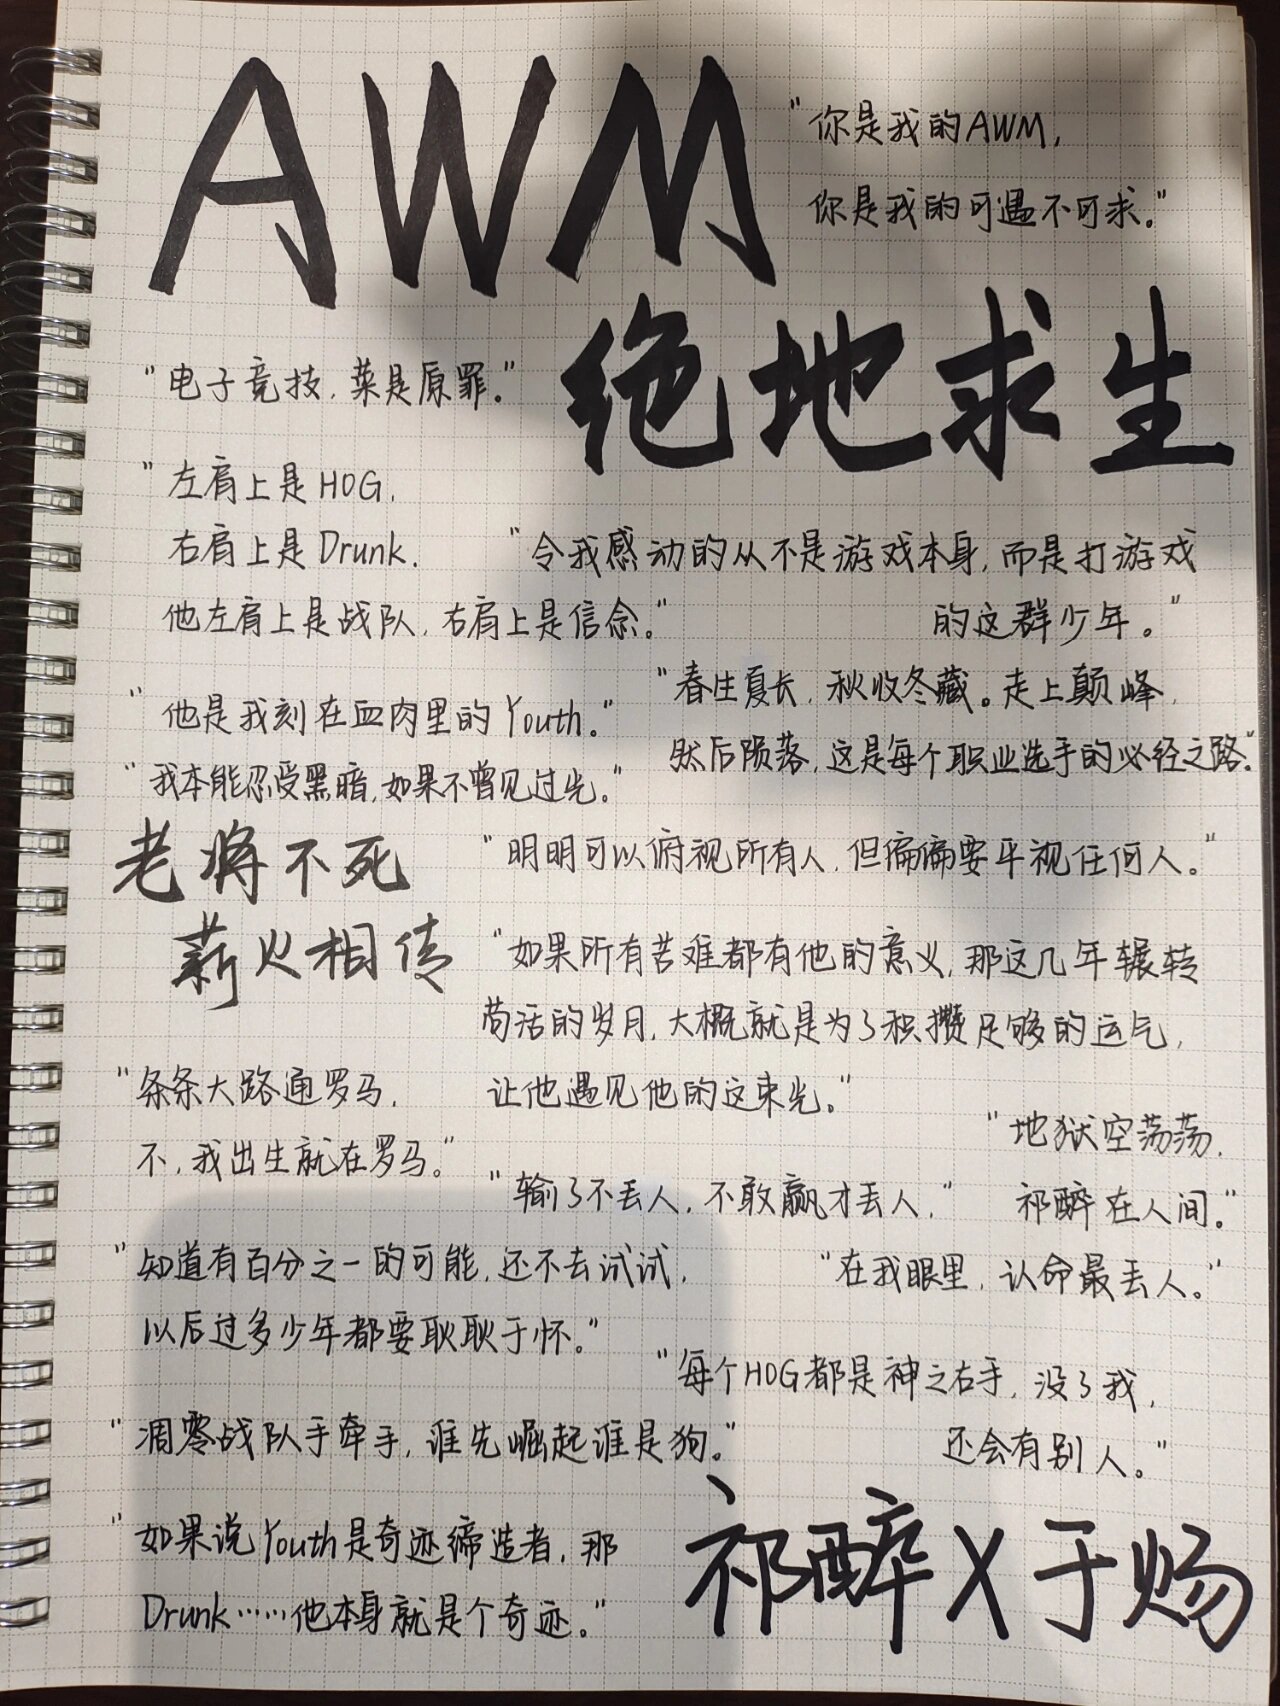 AWM
"你是我的AWM,
你是我的可遇不可求。"
绝地求生
"电子竞技,菜是原罪。"
"左肩上是HOG,
右肩上是Drunk,
他左肩上是战队,右肩上是信念。"
"令我感动的从不是游戏本身,而是打游戏
的这群少年。"
"他是我刻在血肉里的Youth。"
"春生夏长,秋收冬藏。走上颠峰,
然后陨落,这是每个职业选手的必经之路。"
"我本能忍受黑暗,如果不曾见过光。"
老将不死
薪火相传
"明明可以俯视所有人,但偏偏要平视任何人。"
"如果所有苦难都有他的意义,那这几年辗转
苟活的岁月,大概就是为了积攒足够的运气,
让他遇见他的这束光。"
"条条大路通罗马,
不,我出生就在罗马。"
"地狱空荡荡,
祁醉在人间。"
"输了不丢人,不敢赢才丢人,"
"知道有百分之一的可能,还不去试试,
以后过多少年都要耿耿于怀。"
"在我眼里,认命最丢人。"
"每个HOG都是神之右手,没了我,
还会有别人。"
"凋零战队手牵手,谁先崛起谁是狗。"
"如果说Youth是奇迹缔造者,那
Drunk……他本身就是个奇迹。"
祁醉X于炀